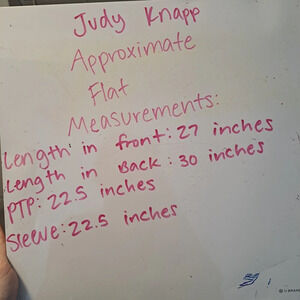 Judy Knapp
Approximate
Flat
Measurements:
Length: in front: 27 inches
Length in Back: 30 inches
PTP: 22.5 inches
Sleeve: 22.5 inches